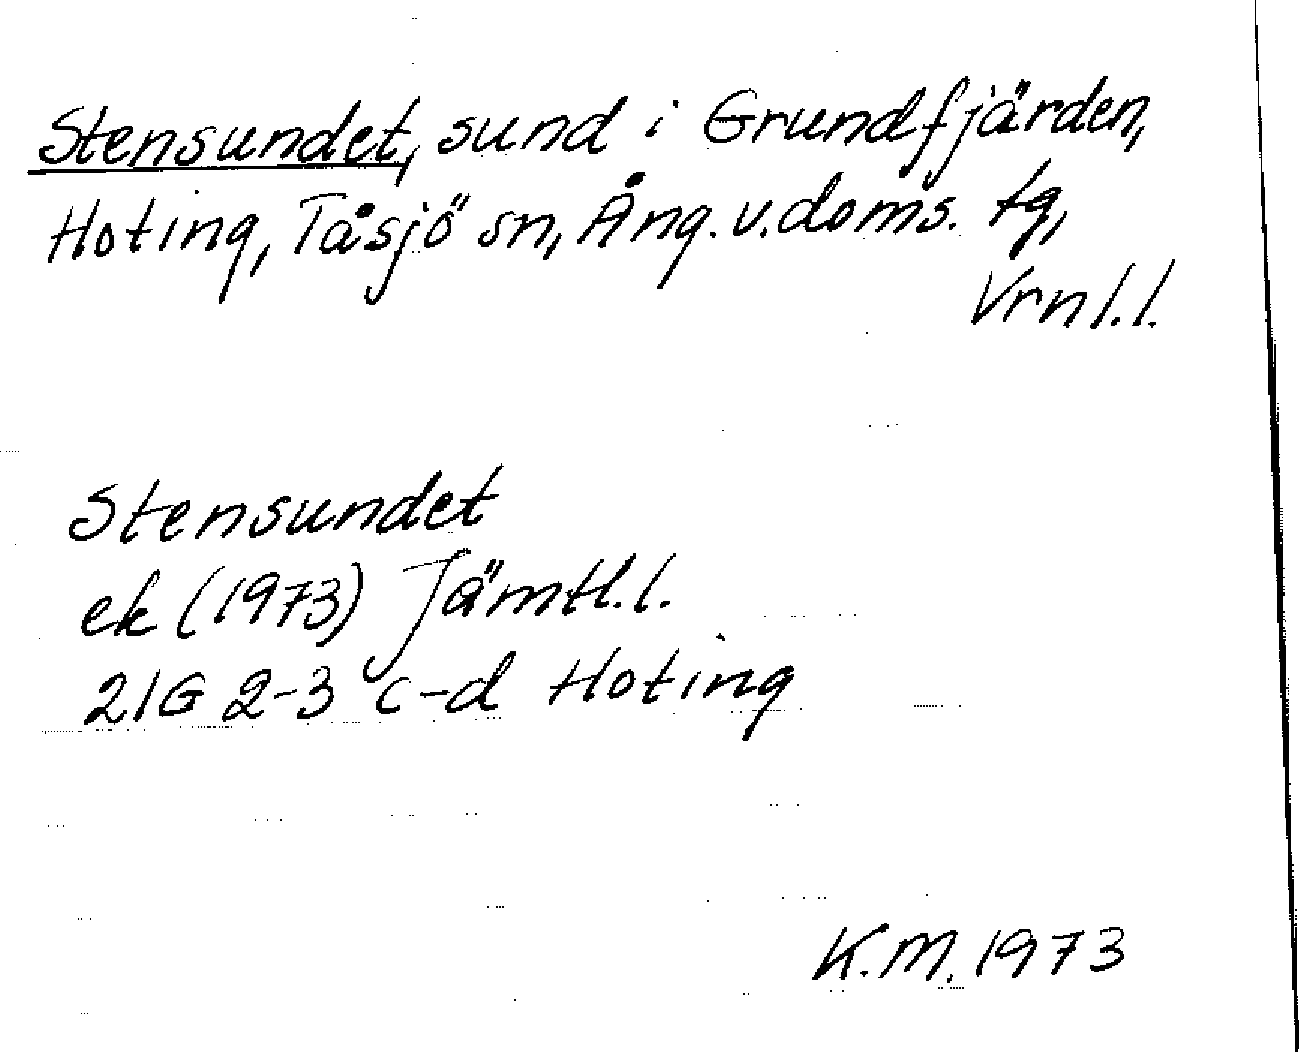 Stensundet, sund i Grundfjärden,
Hoting, Tåsjö sn, Ång. v. doms. tg,
Vrnl.l.
Stensundet
ek (1973) Jämtl.l.
21G 2-3 c-d Hoting
K.M. 1973